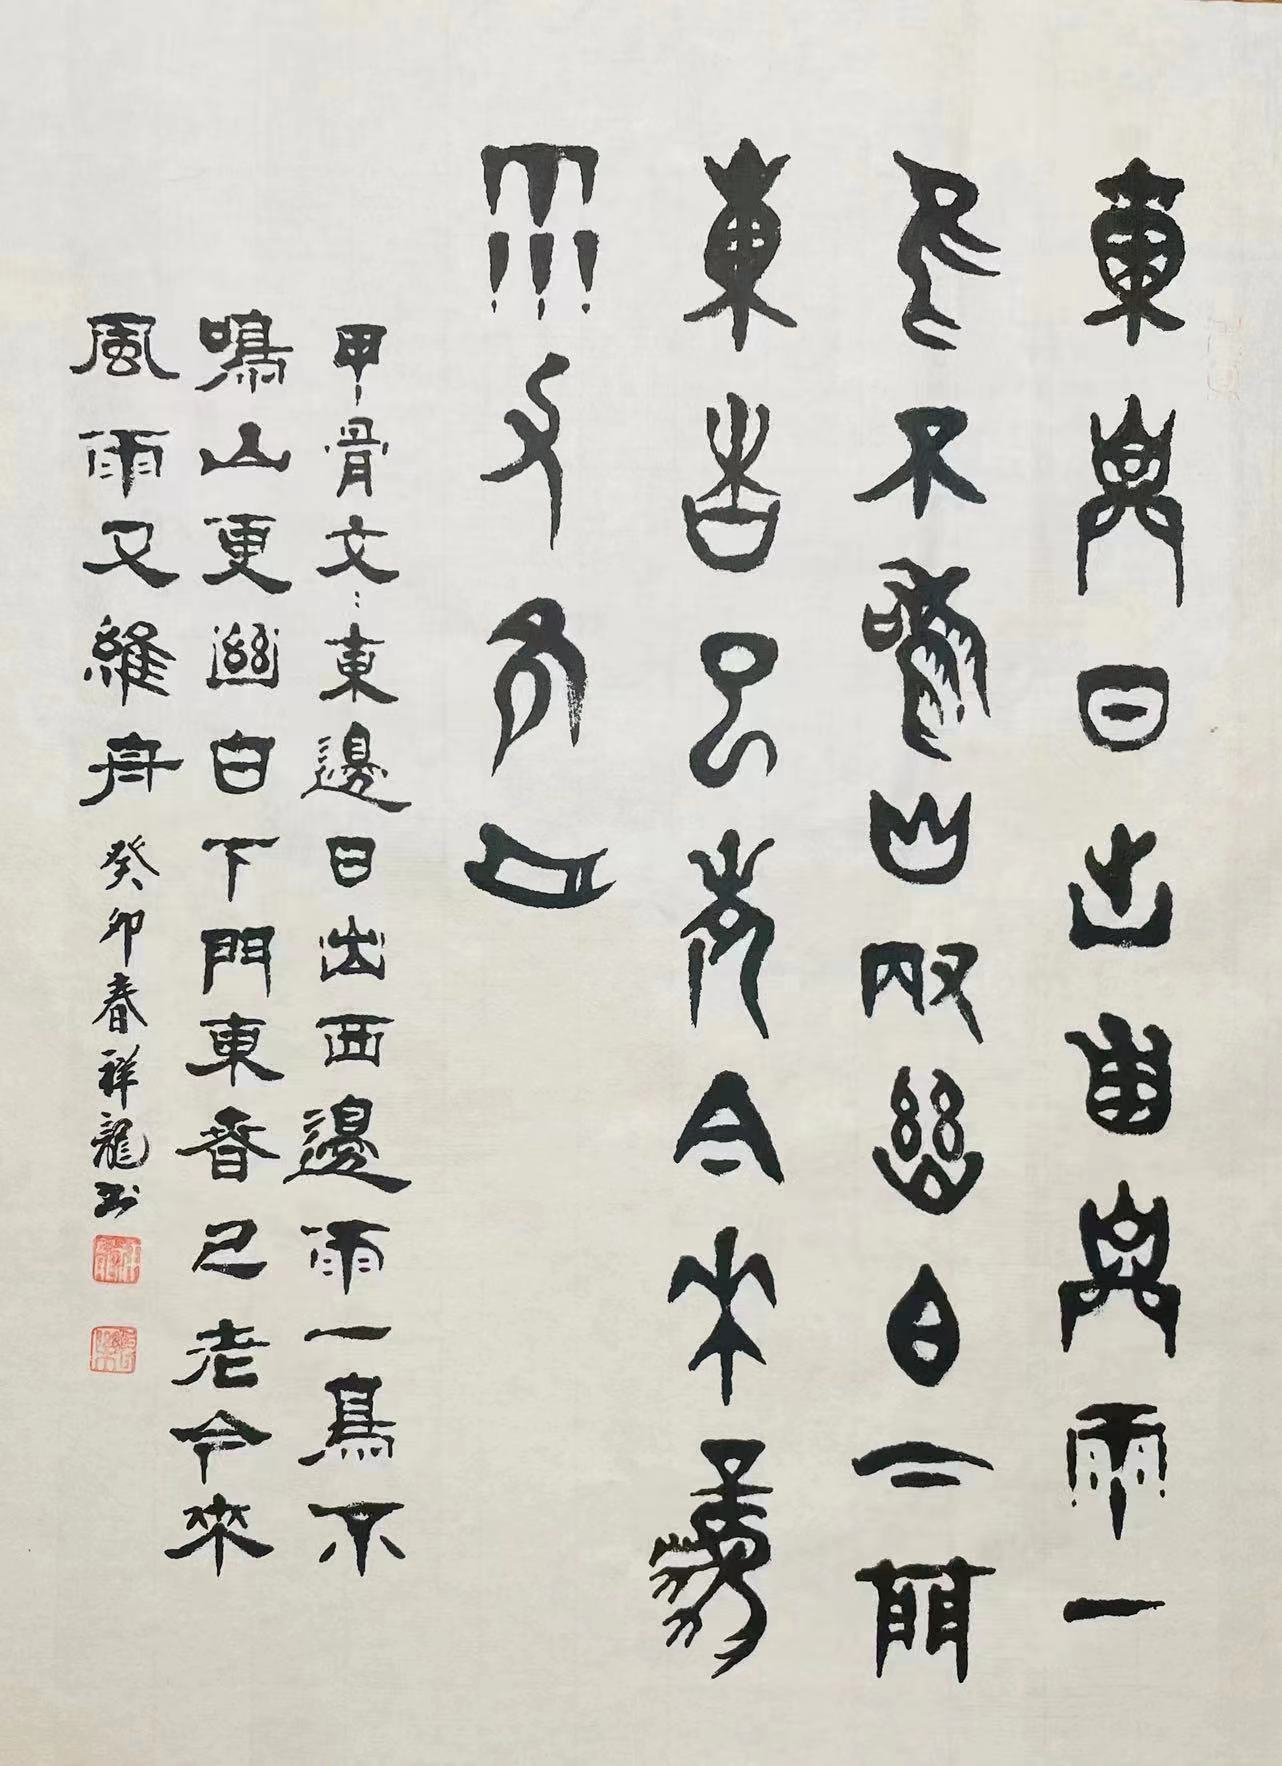 東邊日出西邊雨一
鳥不鳴山更幽白下門
東春已老今來風
雨又維舟
甲骨文：東邊日出西邊雨一鳥不
鳴山更幽白下門東春已老今來
風雨又維舟 癸卯春祥龍书